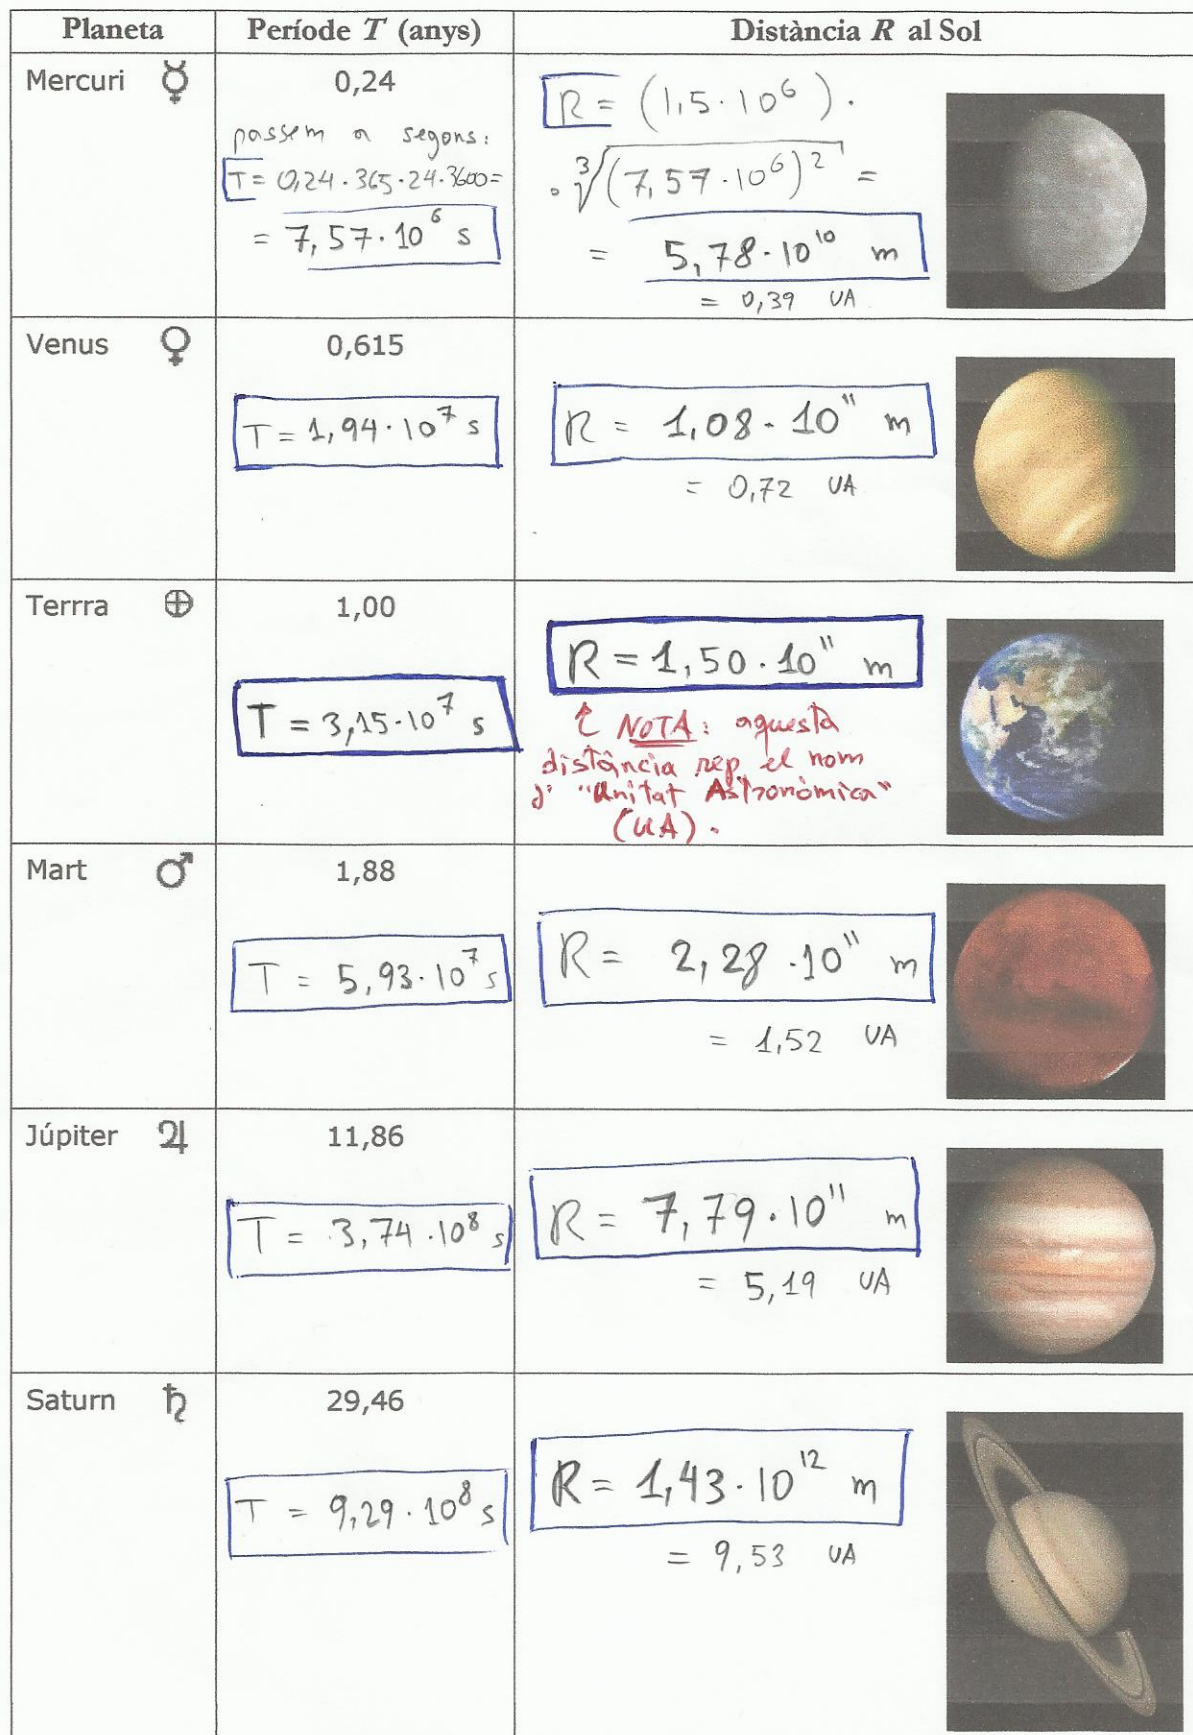 Planeta Període T (anys) Distància R al Sol
Mercuri ☿ 0,24
passem a segons:
T = 0,24 · 365 · 24 · 3600 =
= 7,57 · 10⁶ s
R = (1,5 · 10⁶) ·
· ∛(7,57 · 10⁶)² =
= 5,78 · 10¹⁰ m
= 0,39 UA
Venus ♀ 0,615
T = 1,94 · 10⁷ s
R = 1,08 · 10¹¹ m
= 0,72 UA
Terrra ⊕ 1,00
T = 3,15 · 10⁷ s
R = 1,50 · 10¹¹ m
↑ NOTA: aquesta
distància rep el nom
d' "Unitat Astronòmica"
(UA).
Mart ♂ 1,88
T = 5,93 · 10⁷ s
R = 2,28 · 10¹¹ m
= 1,52 UA
Júpiter ♃ 11,86
T = 3,74 · 10⁸ s
R = 7,79 · 10¹¹ m
= 5,19 UA
Saturn ♄ 29,46
T = 9,29 · 10⁸ s
R = 1,43 · 10¹² m
= 9,53 UA